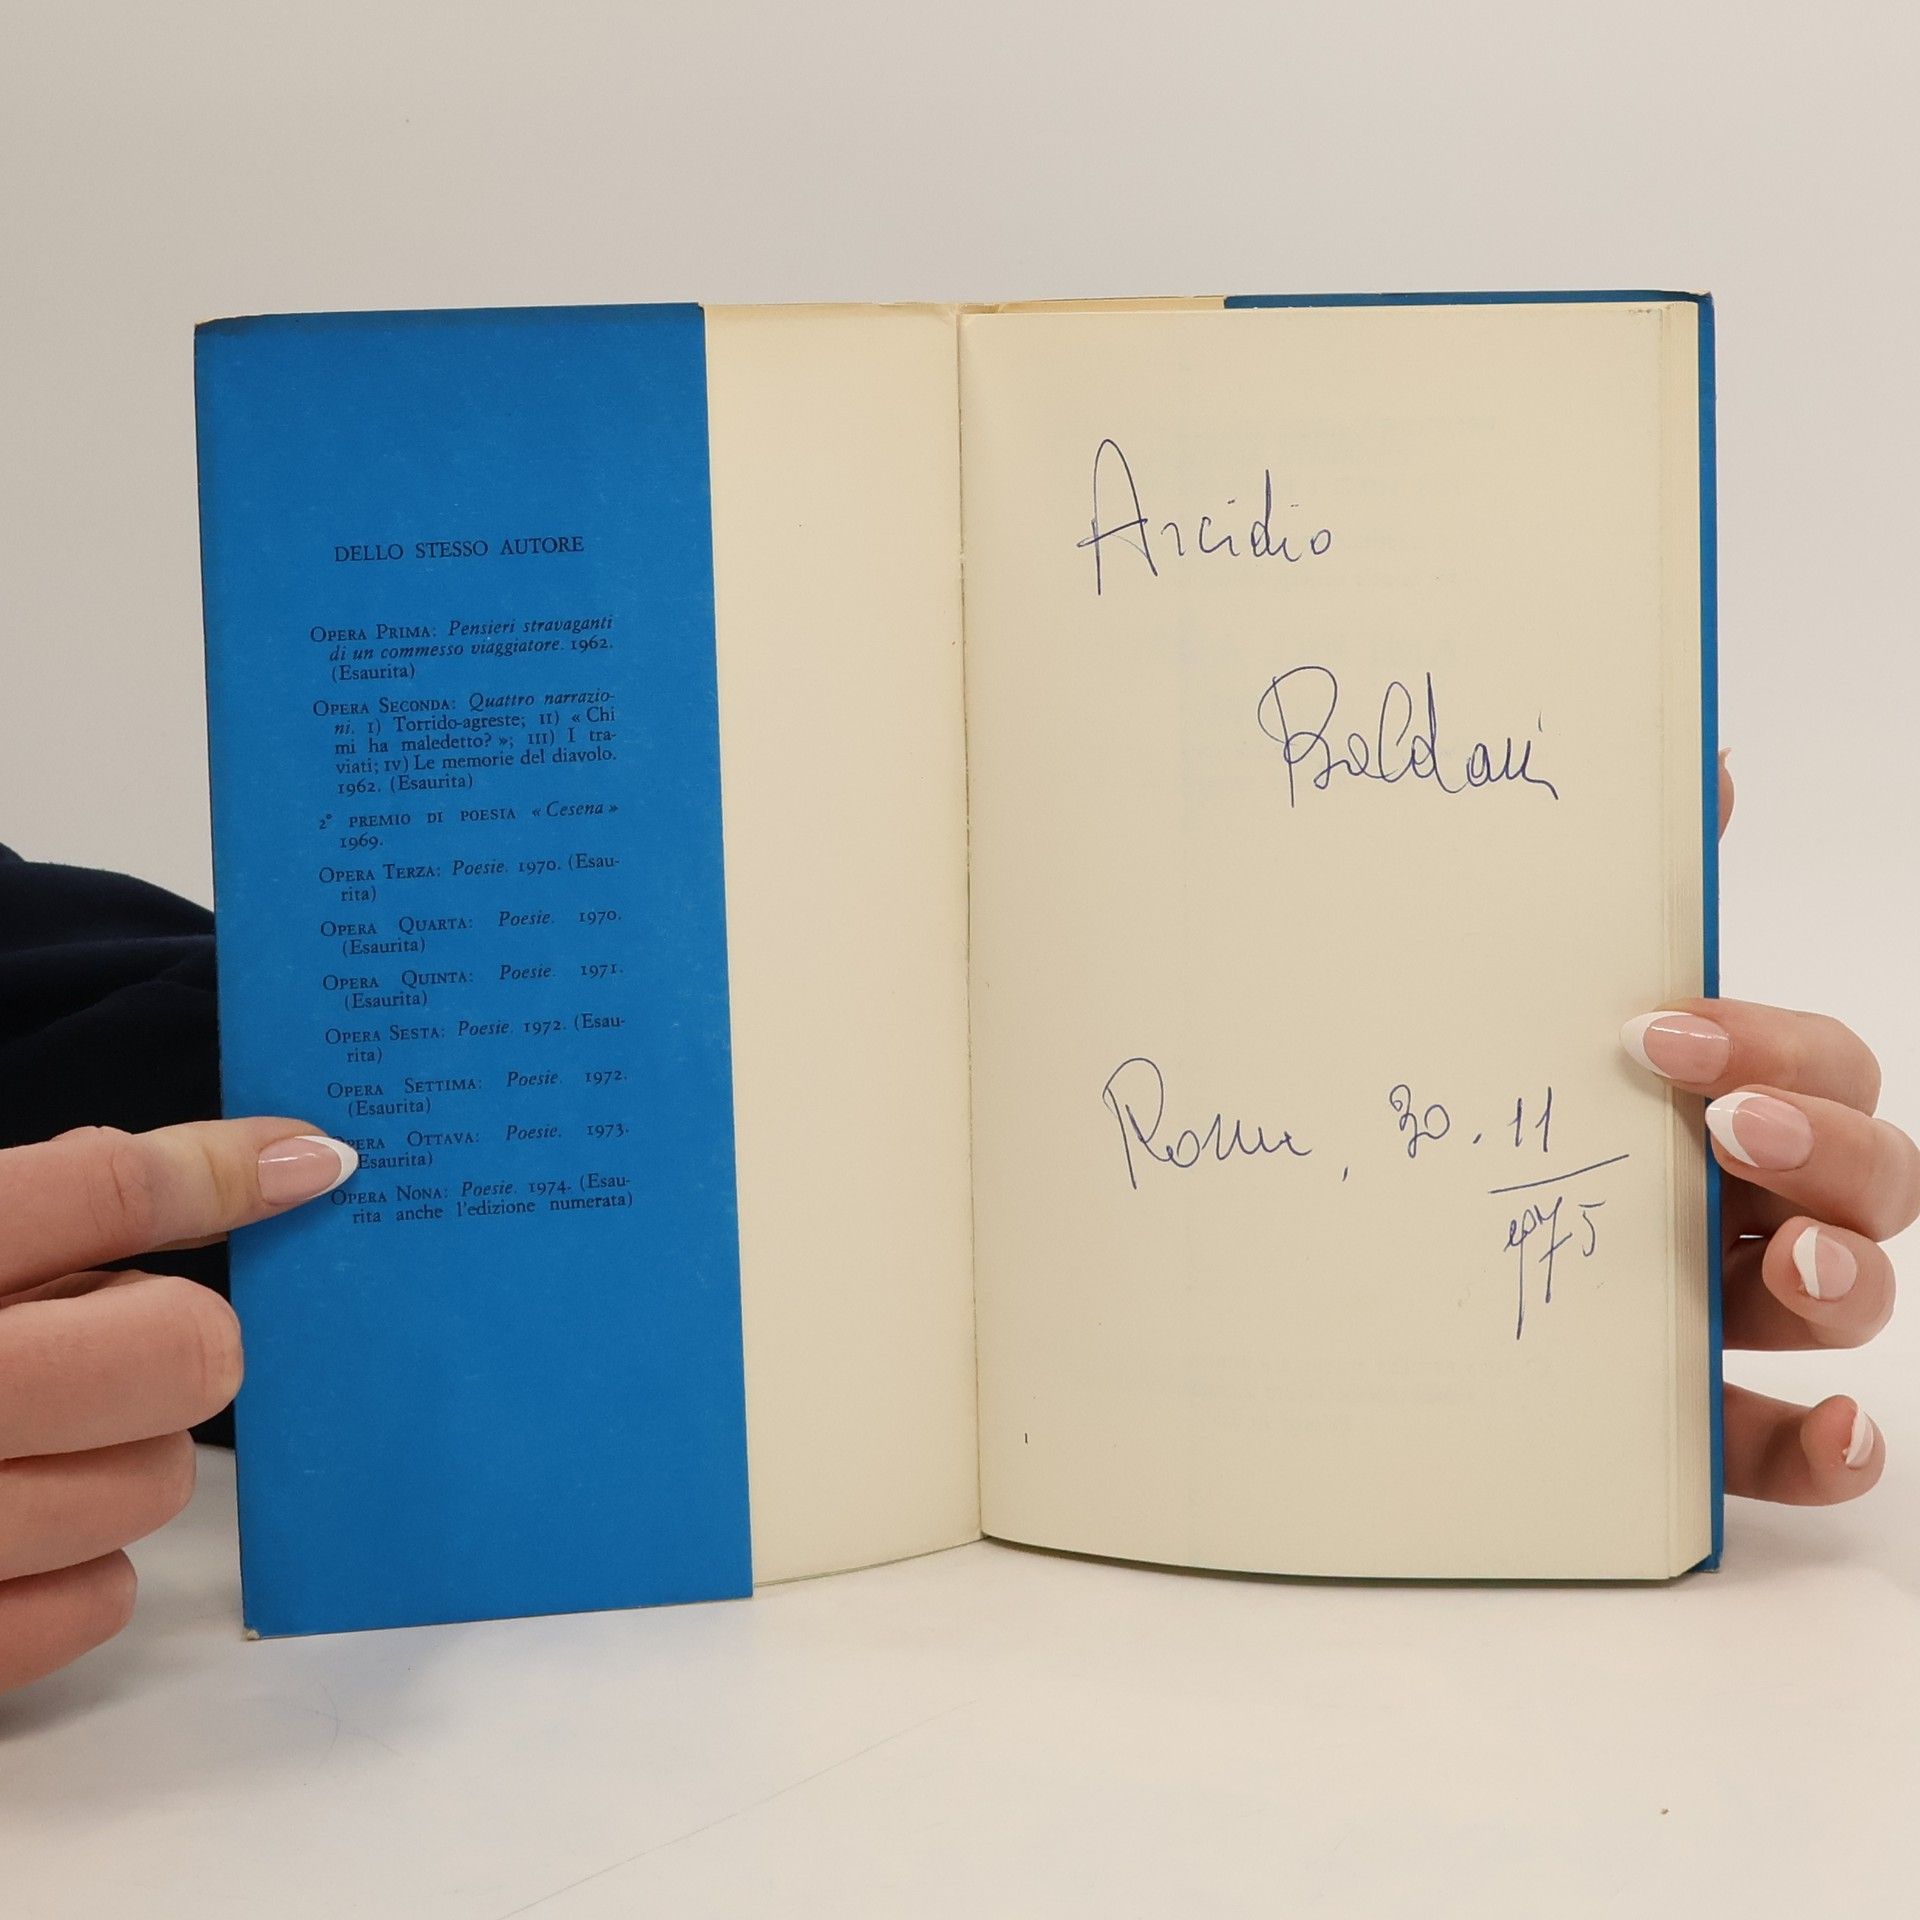 DELLO STESSO AUTORE
OPERA PRIMA: Pensieri stravaganti
di un commesso viaggiatore. 1962.
(Esaurita)
OPERA SECONDA: Quattro narrazio-
ni. I) Torrido-agreste; II) « Chi
mi ha maledetto? »; III) I tra-
viati; IV) Le memorie del diavolo.
1962. (Esaurita)
2° PREMIO DI POESIA « Cesena »
1969.
OPERA TERZA: Poesie. 1970. (Esau-
rita)
OPERA QUARTA: Poesie. 1970.
(Esaurita)
OPERA QUINTA: Poesie. 1971.
(Esaurita)
OPERA SESTA: Poesie. 1972. (Esau-
rita)
OPERA SETTIMA: Poesie. 1972.
(Esaurita)
OPERA OTTAVA: Poesie. 1973.
(Esaurita)
OPERA NONA: Poesie. 1974. (Esau-
rita anche l'edizione numerata)
Arcidio
Baldani
Roma, 30.11
975
1